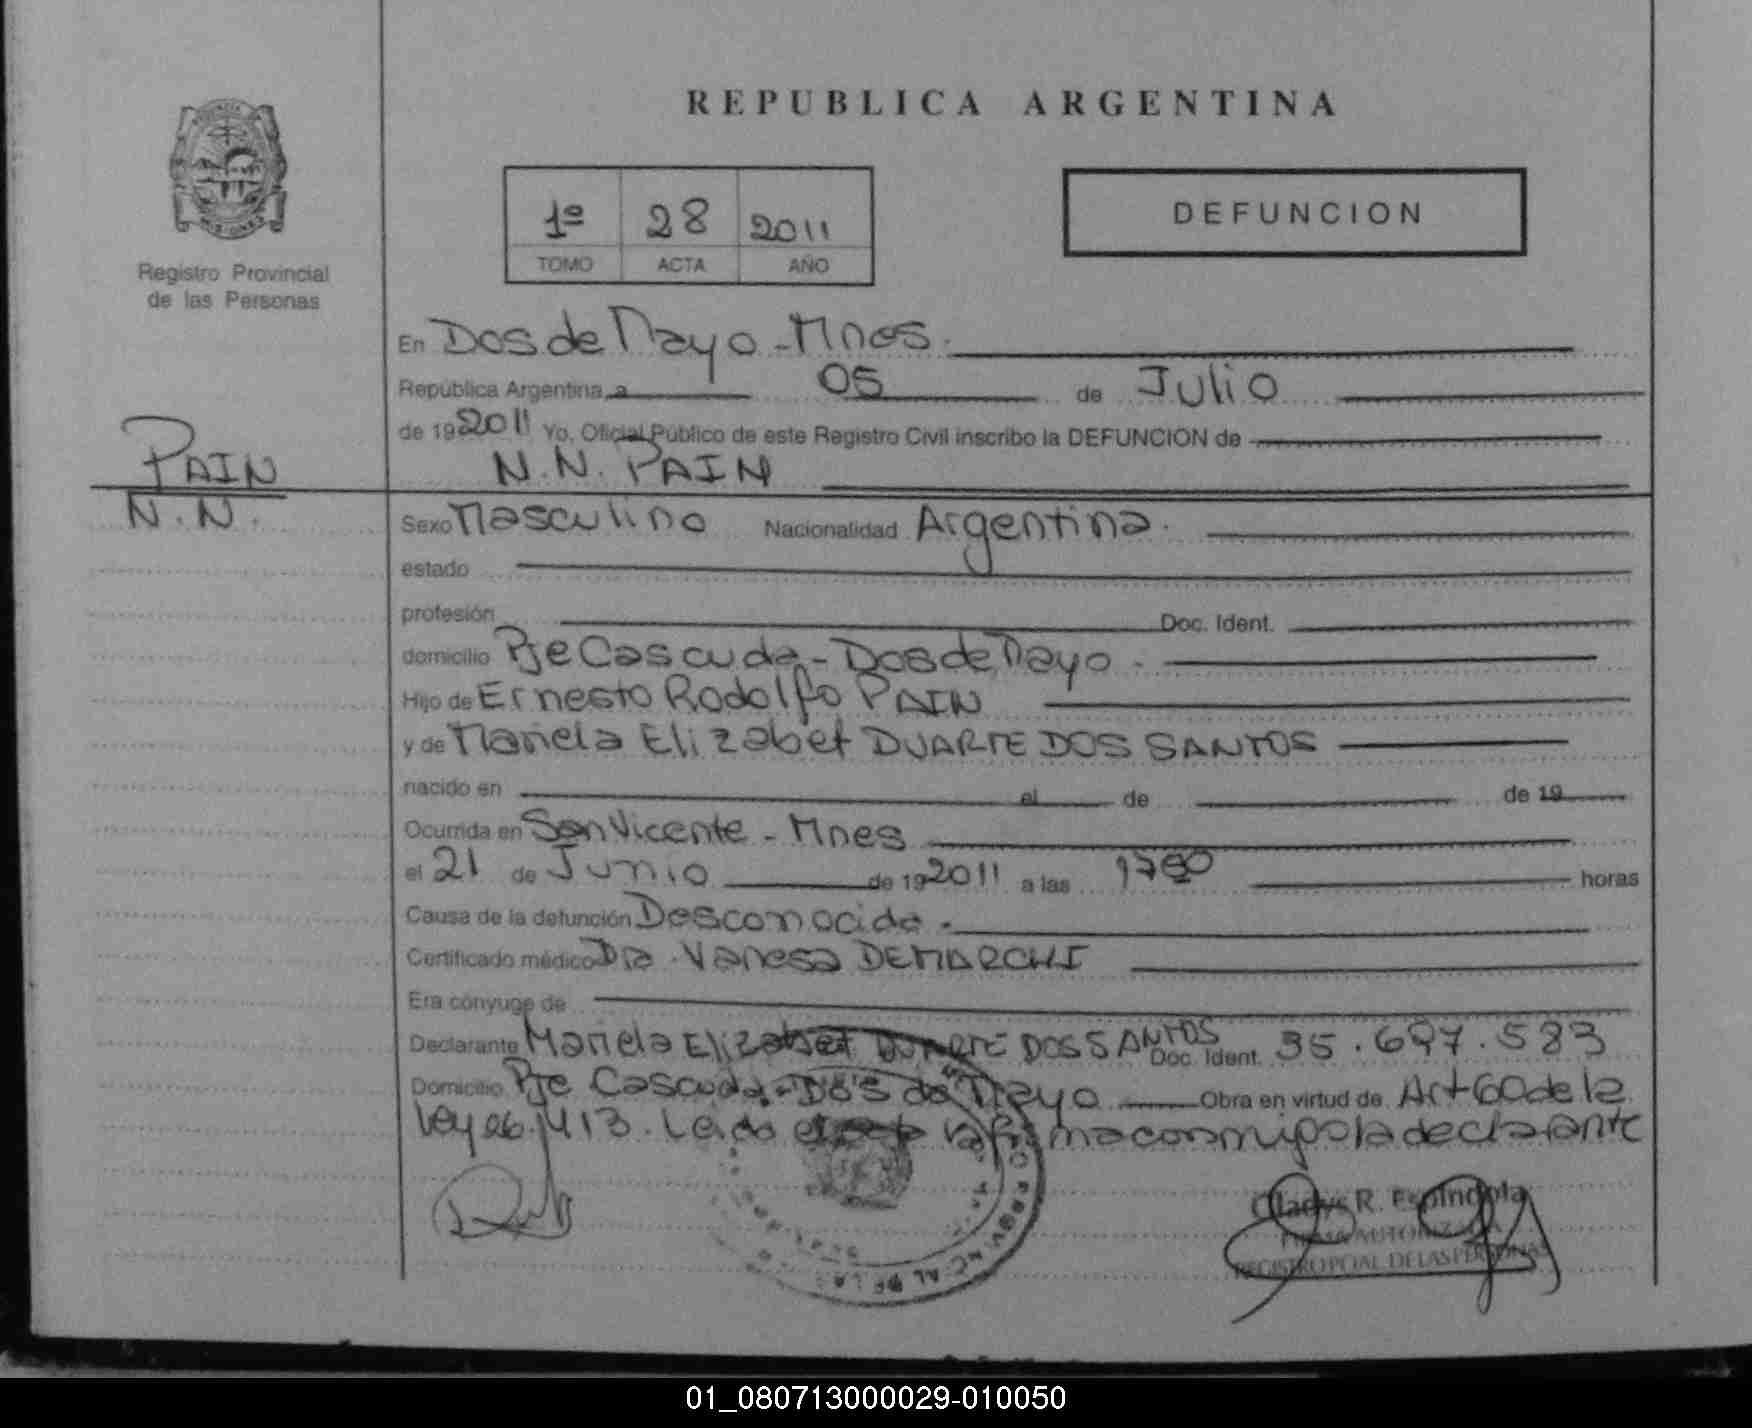 REPUBLICA ARGENTINA
1º 28 2011
TOMO ACTA AÑO
DEFUNCION
Registro Provincial
de las Personas
PAIN
N.N.
En Dos de Mayo - Mnes.
República Argentina, a 05 de Julio
de 19 2011 Yo, Oficial Público de este Registro Civil inscribo la DEFUNCION de
N.N. PAIN
Sexo Masculino Nacionalidad Argentina.
estado
profesión Doc. Ident.
domicilio Pje Cascuda - Dos de Mayo.
Hijo de Ernesto Rodolfo PAIN
y de Mariela Elizabet DUARTE DOS SANTOS
nacido en el de de 19
Ocurrida en San Vicente - Mnes
el 21 de Junio de 19 2011 a las horas
Causa de la defunción Desconocida.
Certificado médico Dra. Vanesa DEMARCHI
Era cónyuge de
Declarante Mariela Elizabet DUARTE DOS SANTOS Doc. Ident. 35.697.583
Domicilio Pje Cascuda - Dos de Mayo Obra en virtud de Art 60 de la
Ley 26.413. Leida el acta la firma conmigo la declarante
Gladys R. Espindola
FIRMA AUTORIZADA
REGISTRO PCIAL. DE LAS PERSONAS
01_080713000029-010050